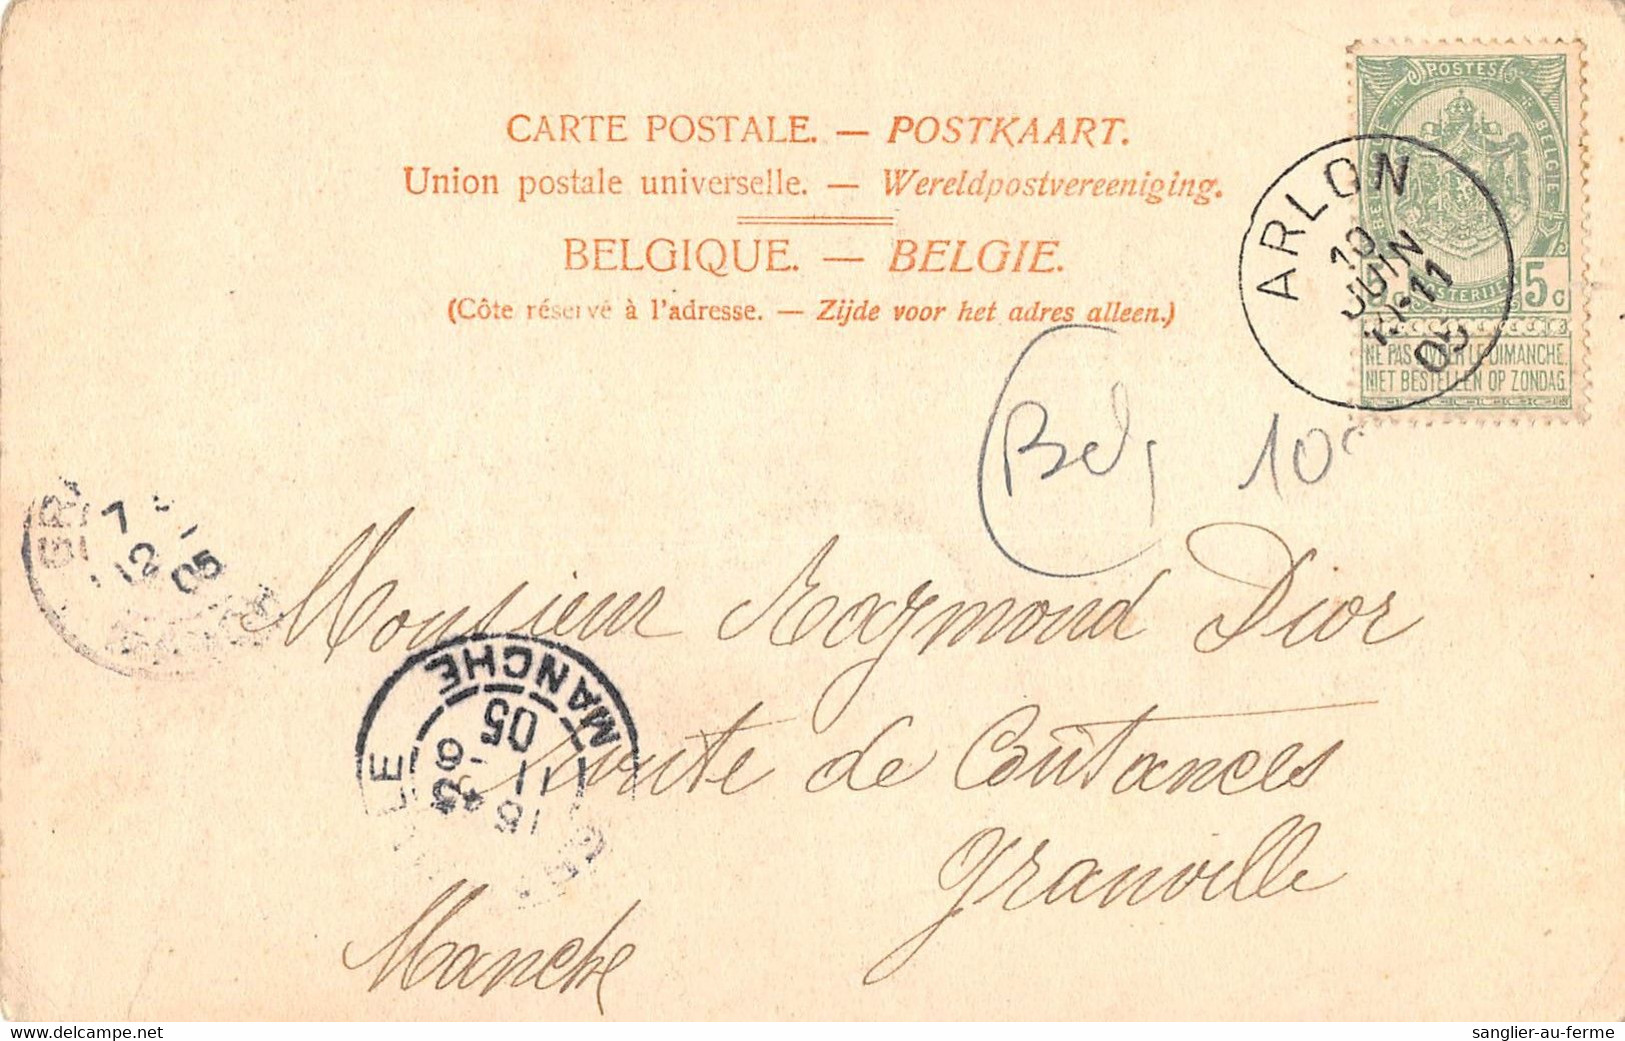 CARTE POSTALE. — POSTKAART.
Union postale universelle. — Wereldpostvereeniging.
BELGIQUE. — BELGIE.
(Côte réservé à l'adresse. — Zijde voor het adres alleen.)
POSTES
BELGIE
5 c
NE PAS LIVRER LE DIMANCHE
NIET BESTELLEN OP ZONDAG
ARLON
10
JUIN
11
05
Belg
10
GR
7
12
05
MANCHE
05
11
LE
Monsieur Raymond Dior
route de Coutances
Granville
Manche
www.delcampe.net
sanglier-au-ferme